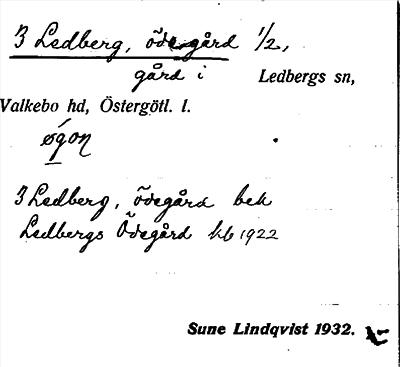 3 Ledberg, ödegård 1/2,
gård i Ledbergs sn,
Valkebo hd, Östergötl. l.
øgon
3 Ledberg, ödegård bek
Ledbergs Ödegård kb 1922
Sune Lindqvist 1932.